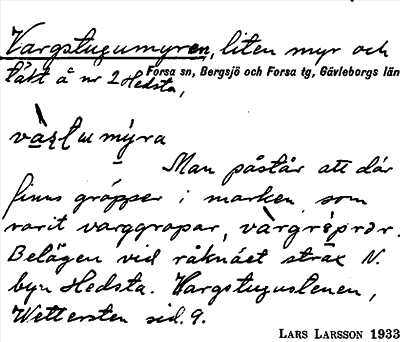 Vargstugumyren, liten myr och
täkt å nr 2 Hedsta,
Forsa sn, Bergsjö och Forsa tg, Gävleborgs län
Man påstår att där
finns gropper i marken som
varit varggropar,
Belägen vid råknäet strax N.
byn Hedsta. Vargstugustenen,
Wettersten sid. 9.
LARS LARSSON 1933